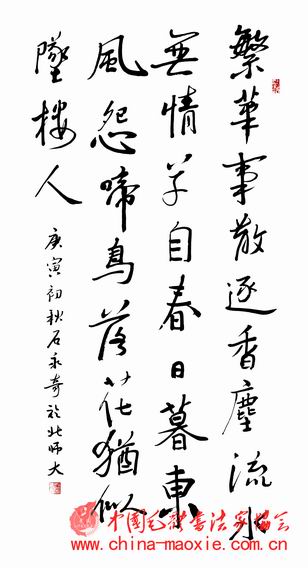 繁華事散逐香塵流水
無情草自春日暮東
風怨啼鳥落花猶似
墜樓人
庚寅初秋石永奇於北师大
中国毛体书法家协会
www.china-maoxie.com.cn